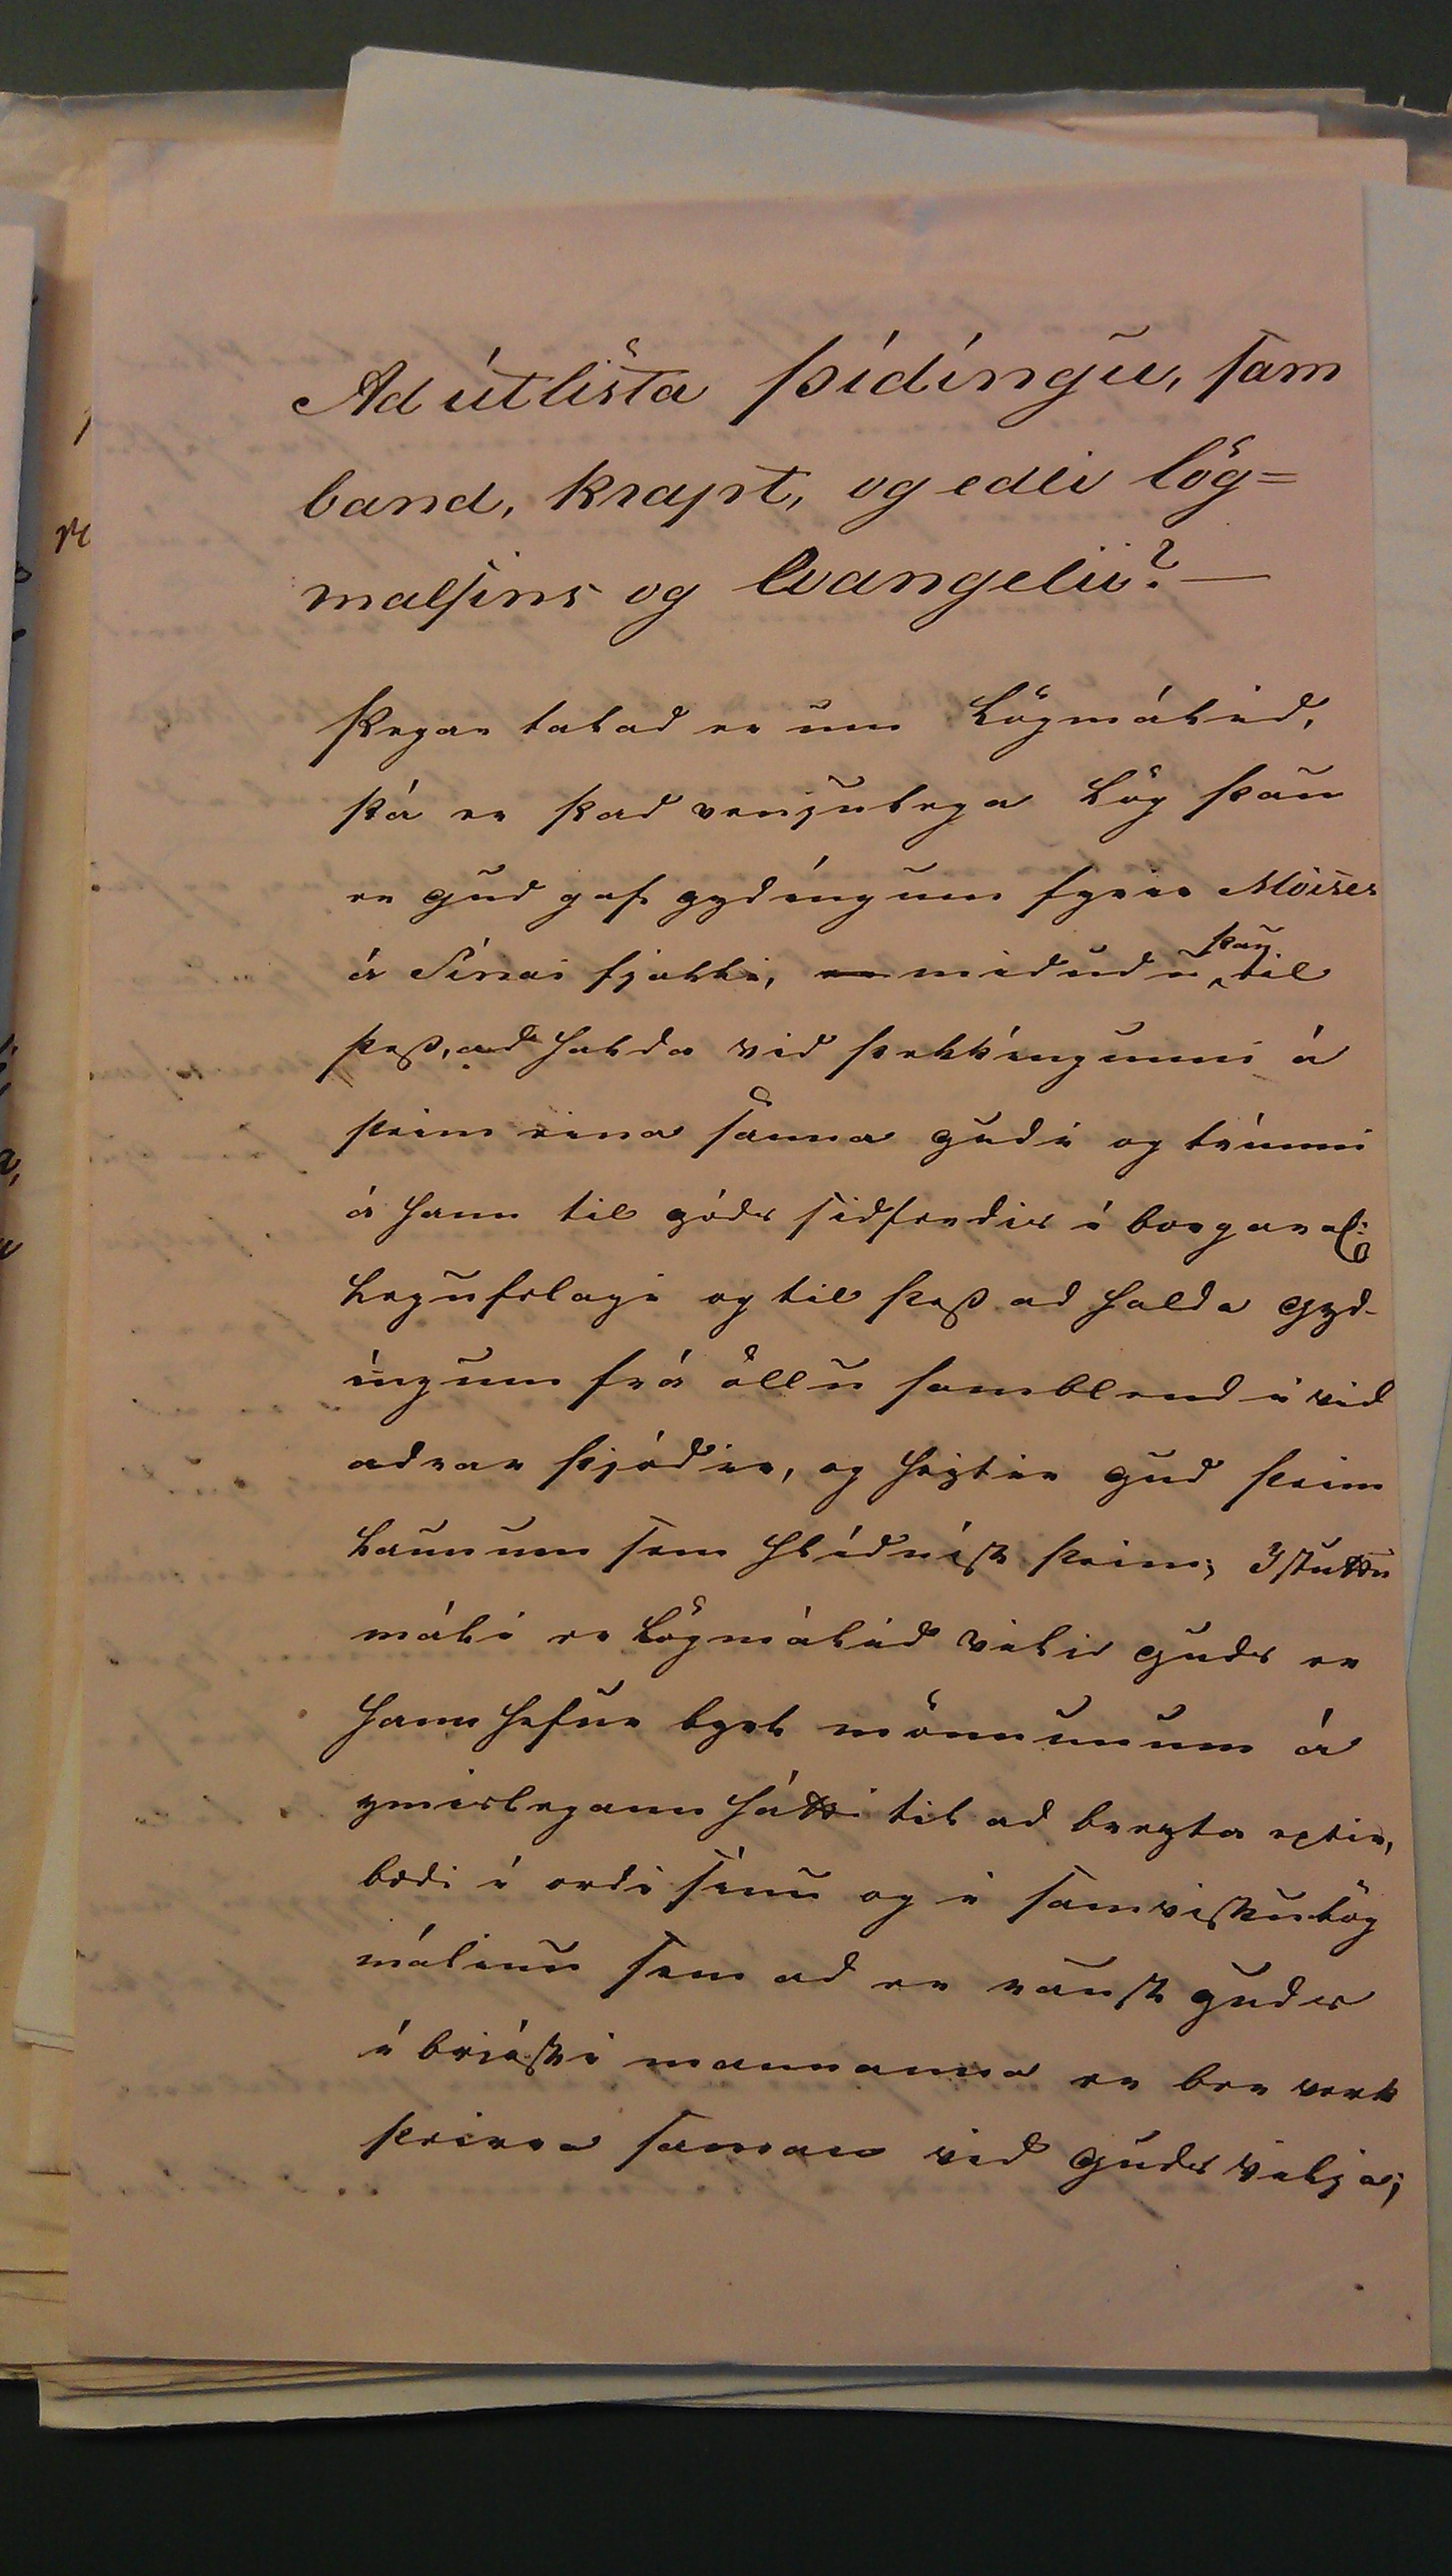 Ad útlista þídíngu, sam
band, krapt, og edli lög=
malsins og Evangelii? —
Þegar talad er um Lögmálid,
þá er þad venjulega Lög þau
er gud gaf gydíngum fyrir Móises
á Sínai fjalli, midudu þau til
þess, ad halda vid þekkíngunni á
þeim eina sanna gudi og trúnni
á hann til góds sidferdis í borgara
legufelagi og til þess ad halda gyd-
íngum frá öllu samblendi vid
adrar þjódir, og heytir gud þeim
launum sem hlídnist þeim; Í stuttu
máli er Lögmálid vilie guds er
hann hefur byrt mönnunum á
ymislegann hátt til ad breyta eptir,
bædi í ordi sínu og í samviskulög
málinu sem ad er raust guds
í briósti mannanna er ber verk
þeirra saman vid guds vilja;